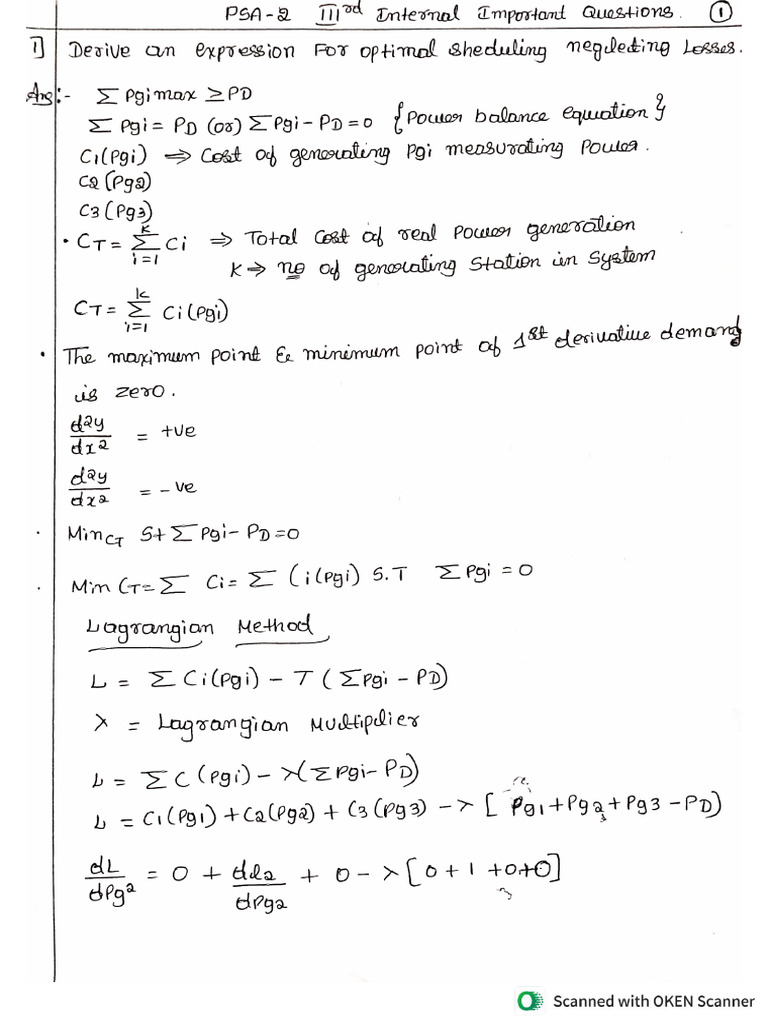 PSA-2 IIIrd Internal Important Questions. ①
1] Derive an expression For optimal sheduling neglecting Losses.
Ans:- Σ Pgimax ≥ PD
Σ Pgi = PD (or) Σ Pgi - PD = 0 {Power balance equation}
C1(Pgi) ⇒ Cost of generating Pgi measurating Power.
C2(Pg2)
C3(Pg3)
• CT = Σ(i=1 to k) Ci ⇒ Total Cost of real Power generation
K → no of generating Station in System
CT = Σ(i=1 to k) Ci(Pgi)
• The maximum point & minimum point of 1st derivative demand
is zero.
d2y/dx2 = +ve
d2y/dx2 = -ve
• Min CT St Σ Pgi - PD = 0
• Min CT = Σ Ci = Σ (i(Pgi) S.T Σ Pgi = 0
Lagrangian Method
L = Σ Ci(Pgi) - T (ΣPgi - PD)
λ = Lagrangian Multiplier
L = Σ C (Pgi) - λ(ΣPgi - PD)
L = C1(Pg1) + C2(Pg2) + C3(Pg3) - λ [Pg1 + Pg2 + Pg3 - PD)
dL/dPg2 = 0 + dd2/dPg2 + 0 - λ [0 + 1 + 0 + 0]
Scanned with OKEN Scanner